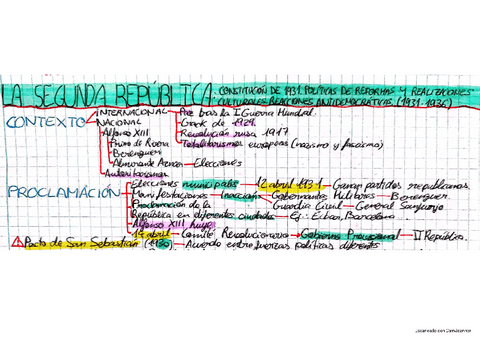 LA SEGUNDA REPÚBLICA: CONSTITUCIÓN DE 1931. POLÍTICAS DE REFORMAS Y REALIZACIONES
CULTURALES. REACCIONES ANTIDEMOCRÁTICAS. (1931-1936)
CONTEXTO
INTERNACIONAL Paz tras la I Guerra Mundial.
NACIONAL Crack de 1929.
Alfonso XIII Revolución rusa 1917
Primo de Rivera Totalitarismos europeos (nazismo y fascismo)
Berenguer
Almirante Aznar Elecciones
Autoritarismos
PROCLAMACIÓN
Elecciones municipales 12 abril 1931 Ganan partidos republicanos.
Manifestaciones Inacción Gobernantes Militares Berenguer.
Proclamación de la Guardia Civil General Sanjurjo
República en diferentes ciudades Ej: Eibar, Barcelona.
Alfonso XIII huye
14 abril Comité Revolucionario Gobierno Provisional II República.
Pacto de San Sebastián (1930) Acuerdo entre fuerzas políticas diferentes
Escaneado con CamScanner